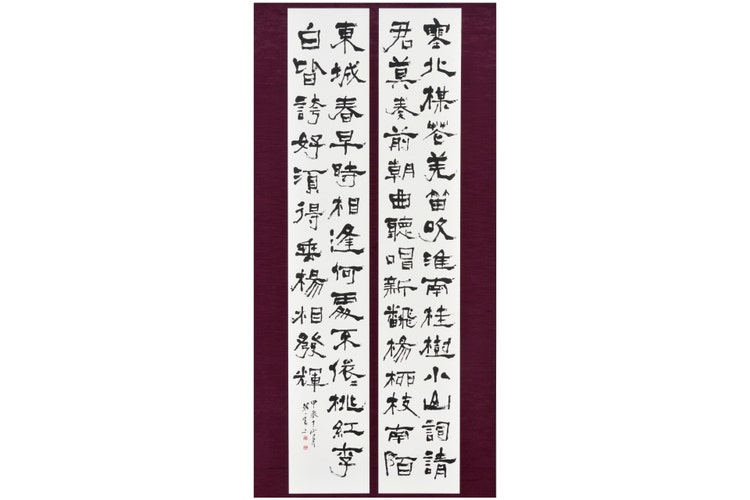 塞北楳花羌笛吹淮南桂樹小山詞請
君莫奏前朝曲聽唱新飜楊柳枝南陌
東城春早時相逢何處不依〻桃紅李
白皆誇好須得垂楊相發輝
甲辰